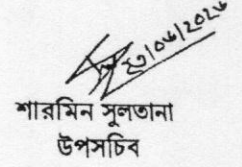 ০৮/০৬/২০২৬
শারমিন সুলতানা
উপসচিব